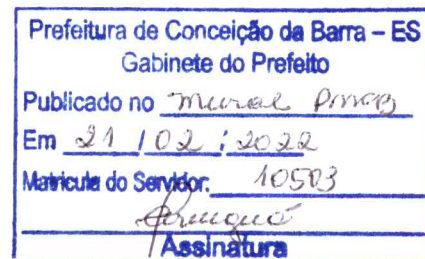 Prefeitura de Conceição da Barra – ES
Gabinete do Prefeito
Publicado no Mural PMCB
Em 21 / 02 / 2022
Matricula do Servidor: 10503
Assinatura